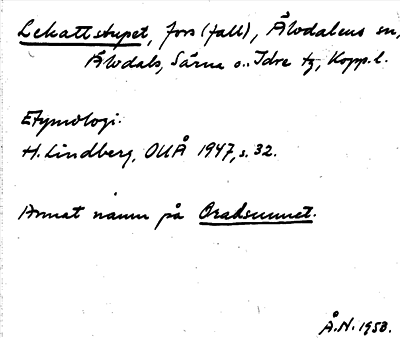 Lekattstupet, fors (fall), Älvdalens sn,
Älvdals, Särna o. Idre tg, Kopp. l.
Etymologi:
H. Lindberg, OUÅ 1947, s. 32.
Annat namn på Oradsunnet.
Å.N. 1958.